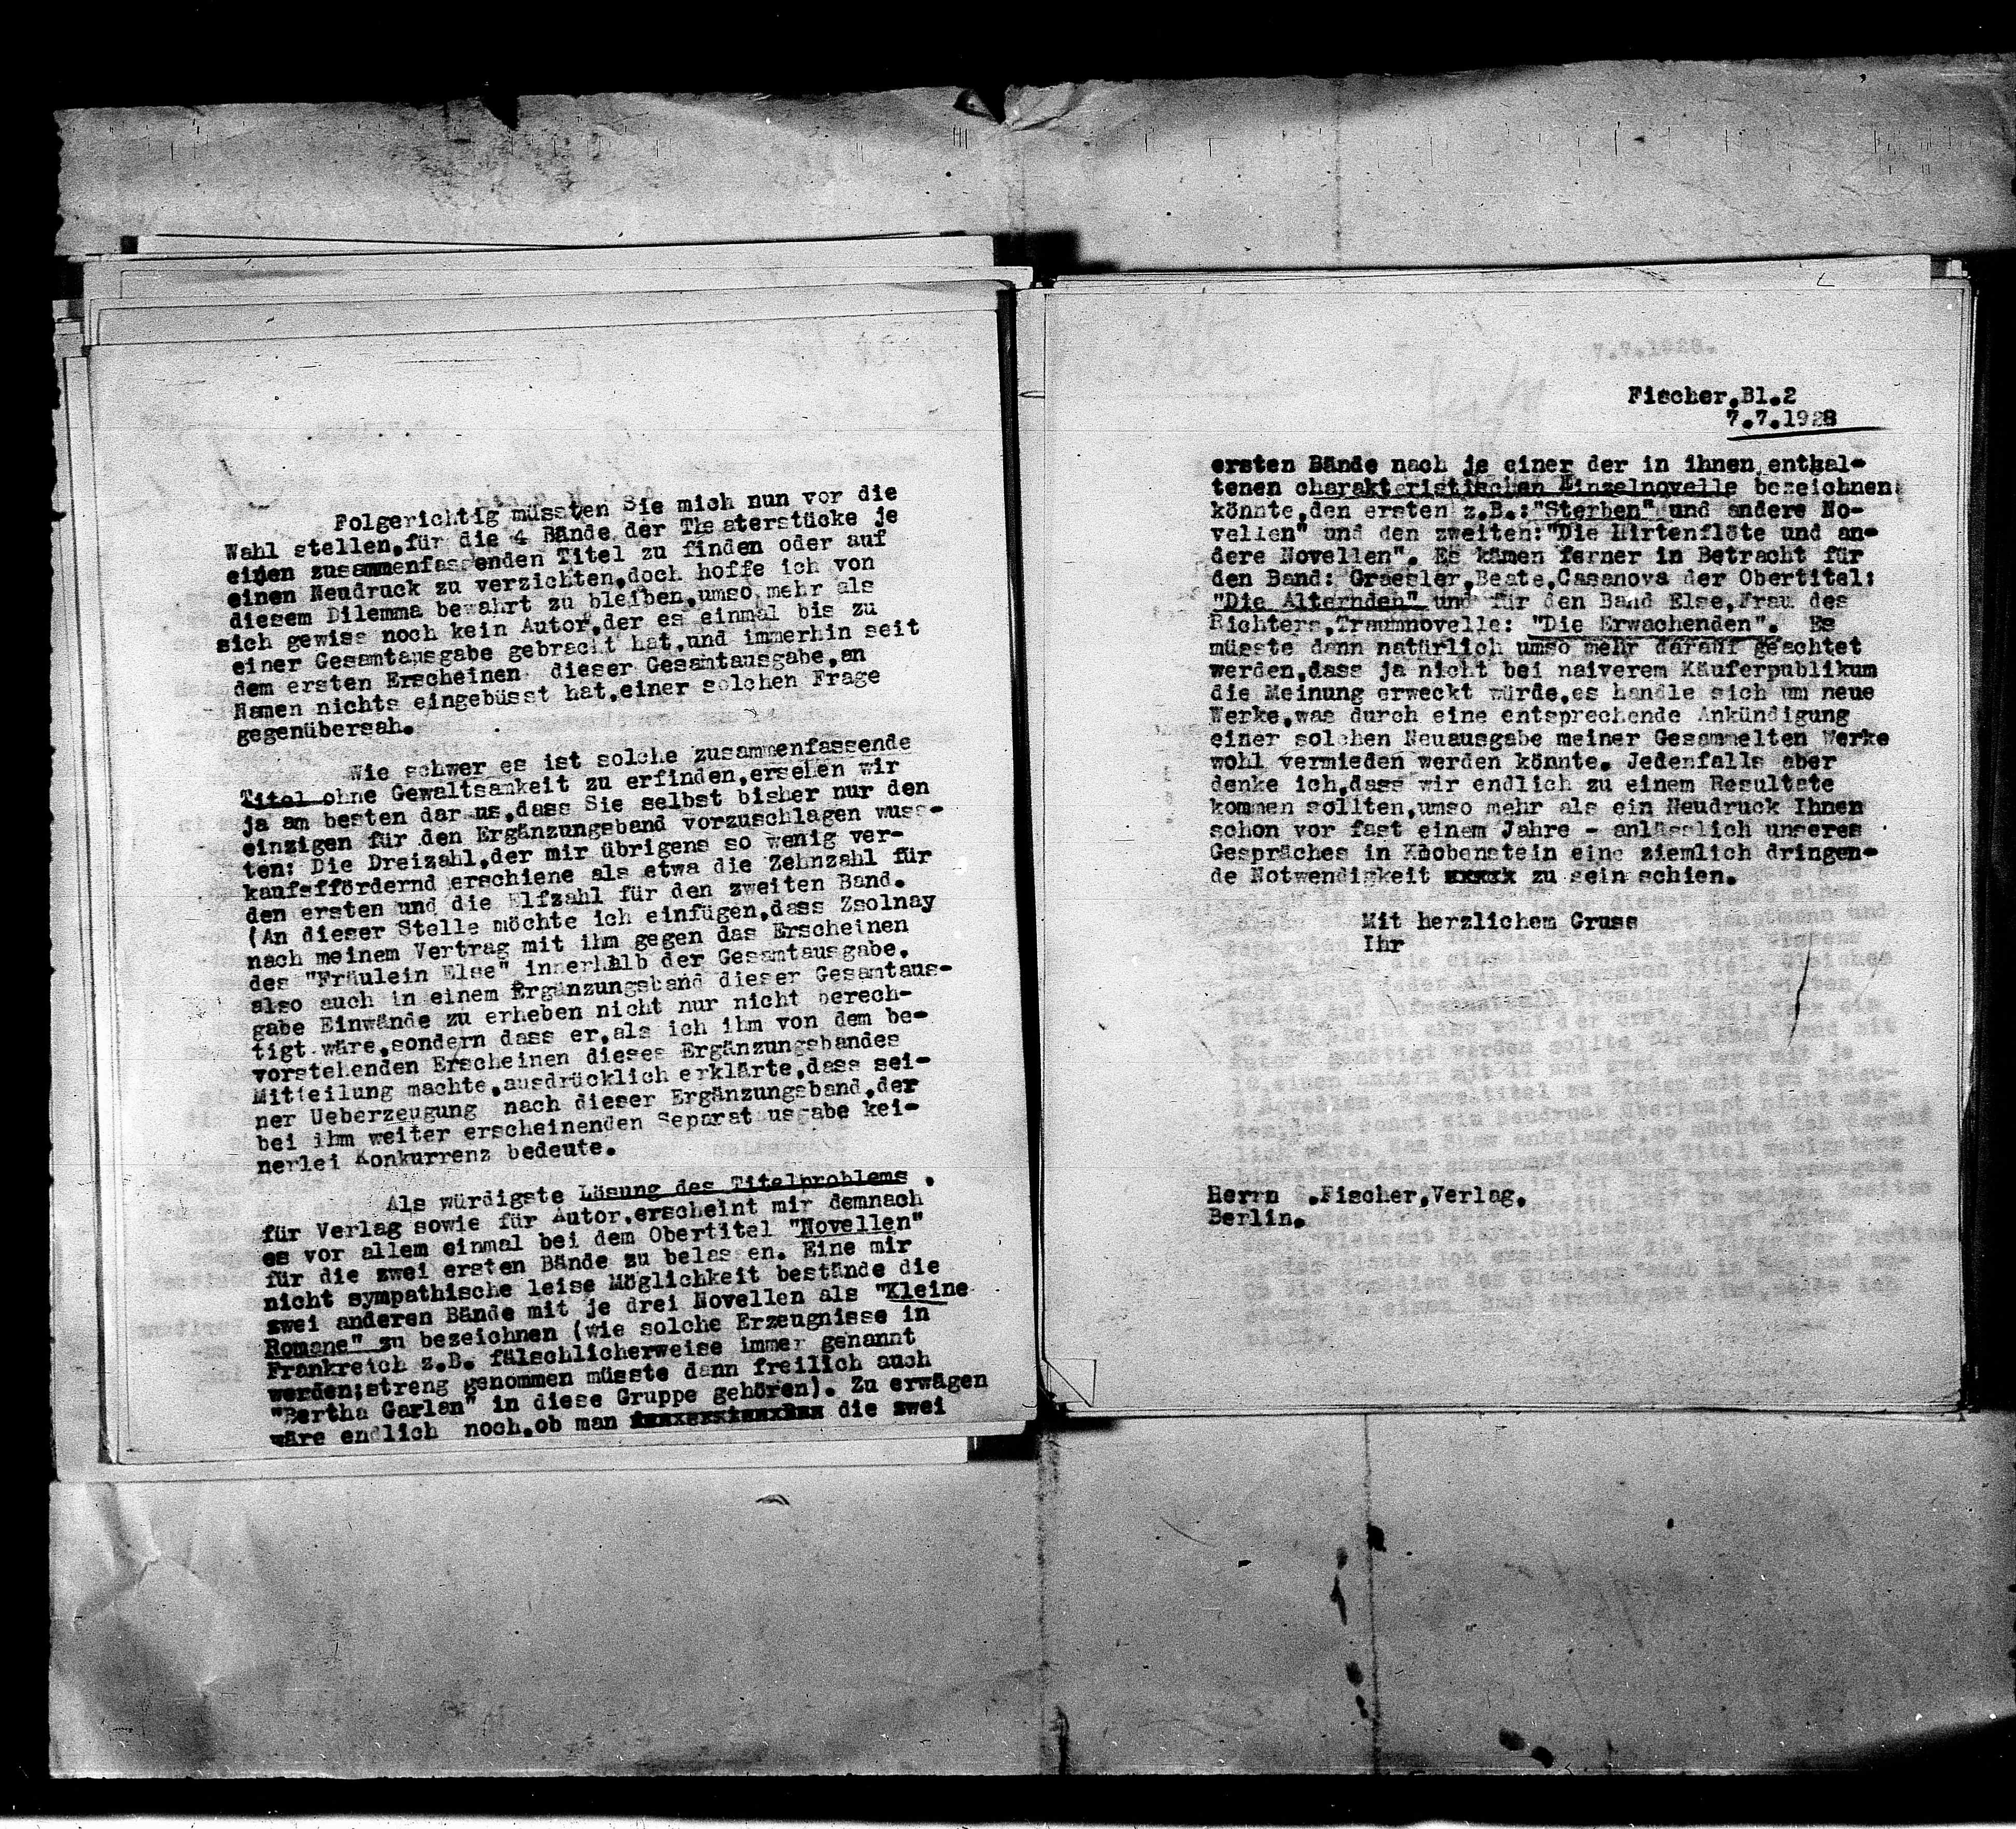 Folgerichtig müssten Sie mich nun vor die
Wahl stellen,für die 4 Bände der Theaterstücke je
einen zusammenfassenden Titel zu finden oder auf
einen Neudruck zu verzichten,doch hoffe ich von
diesem Dilemma bewahrt zu bleiben,umso mehr als
sich gewiss noch kein Autor,der es einmal bis zu
einer Gesamtausgabe gebracht hat,und immerhin seit
dem ersten Erscheinen dieser Gesamtausgabe,an
Namen nichts eingebüsst hat,einer solchen Frage
gegenübersah.
Wie schwer es ist solche zusammenfassende
Titel ohne Gewaltsamkeit zu erfinden,ersehen wir
ja am besten daraus,dass Sie selbst bisher nur den
einzigen für den Ergänzungsband vorzuschlagen wuss-
ten: Die Dreizahl,der mir übrigens so wenig ver-
kaufsffördernd erschiene als etwa die Zehnzahl für
den ersten und die Elfzahl für den zweiten Band.
(An dieser Stelle möchte ich einfügen,dass Zsolnay
nach meinem Vertrag mit ihm gegen das Erscheinen
des "Fräulein Else" innerhalb der Gesamtausgabe,
also auch in einem Ergänzungsband dieser Gesamtaus-
gabe Einwände zu erheben nicht nur nicht berech-
tigt wäre,sondern dass er,als ich ihm von dem be-
vorstehenden Erscheinen dieses Ergänzungsbandes
Mitteilung machte,ausdrücklich erklärte,dass sei-
ner Ueberzeugung nach dieser Ergänzungsband,der
bei ihm weiter erscheinenden Separatausgabe kei-
nerlei Konkurrenz bedeute.
Als würdigste Lösung des Titelproblems ,
für Verlag sowie für Autor,erscheint mir demnach
es vor allem einmal bei dem Obertitel "Novellen"
für die zwei ersten Bände zu belassen. Eine mir
nicht sympathische leise Möglichkeit bestände die
zwei anderen Bände mit je drei Novellen als "Kleine
Romane" zu bezeichnen (wie solche Erzeugnisse in
Frankreich z.B. fälschlicherweise immer genannt
werden;streng genommen müsste dann freilich auch
"Bertha Garlan" in diese Gruppe gehören). Zu erwägen
wäre endlich noch,ob man die zwei
Fischer,Bl.2
7.7.1928
ersten Bände nach je einer der in ihnen enthal-
tenen charakteristischen Einzelnovelle bezeichnen
könnte,den ersten z.B.:"Sterben" und andere No-
vellen" und den zweiten:"Die Hirtenflöte und an-
dere Novellen". Es kämen ferner in Betracht für
den Band: Graesler,Beate,Casanova der Obertitel:
"Die Alternden" und für den Band Else,Frau des
Richters,Traumnovelle: "Die Erwachenden". Es
müsste dann natürlich umso mehr darauf geachtet
werden,dass ja nicht bei naiverem Käuferpublikum
die Meinung erweckt würde,es handle sich um neue
Werke,was durch eine entsprechende Ankündigung
einer solchen Neuausgabe meiner Gesammelten Werke
wohl vermieden werden könnte. Jedenfalls aber
denke ich,dass wir endlich zu einem Resultate
kommen sollten,umso mehr als ein Neudruck Ihnen
schon vor fast einem Jahre - anlässlich unseres
Gespräches in Knobenstein eine ziemlich dringen-
de Notwendigkeit xxxxx zu sein schien.
Mit herzlichem Gruss
Ihr
Herrn .Fischer,Verlag,
Berlin.